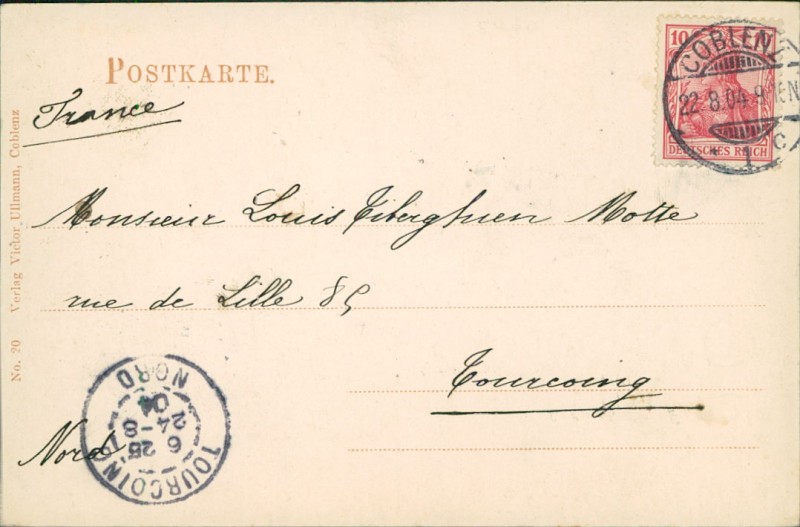 POSTKARTE.
10
DEUTSCHES REICH
COBLENZ
22.8.04.9
1 c
France
Monsieur Louis Tiberghien Motte
rue de Lille 85
Tourcoing
Nord
TOURCOING
6 25
24-8
04
NORD
No. 20 Verlag Victor Ullmann, Coblenz